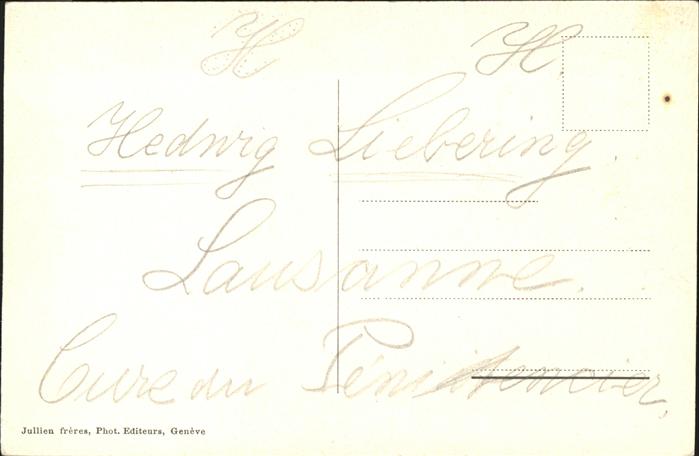 H H.
Hedwig Liebering.
Lausanne.
Cure du Pénitencier,
Jullien frères, Phot. Editeurs, Genève